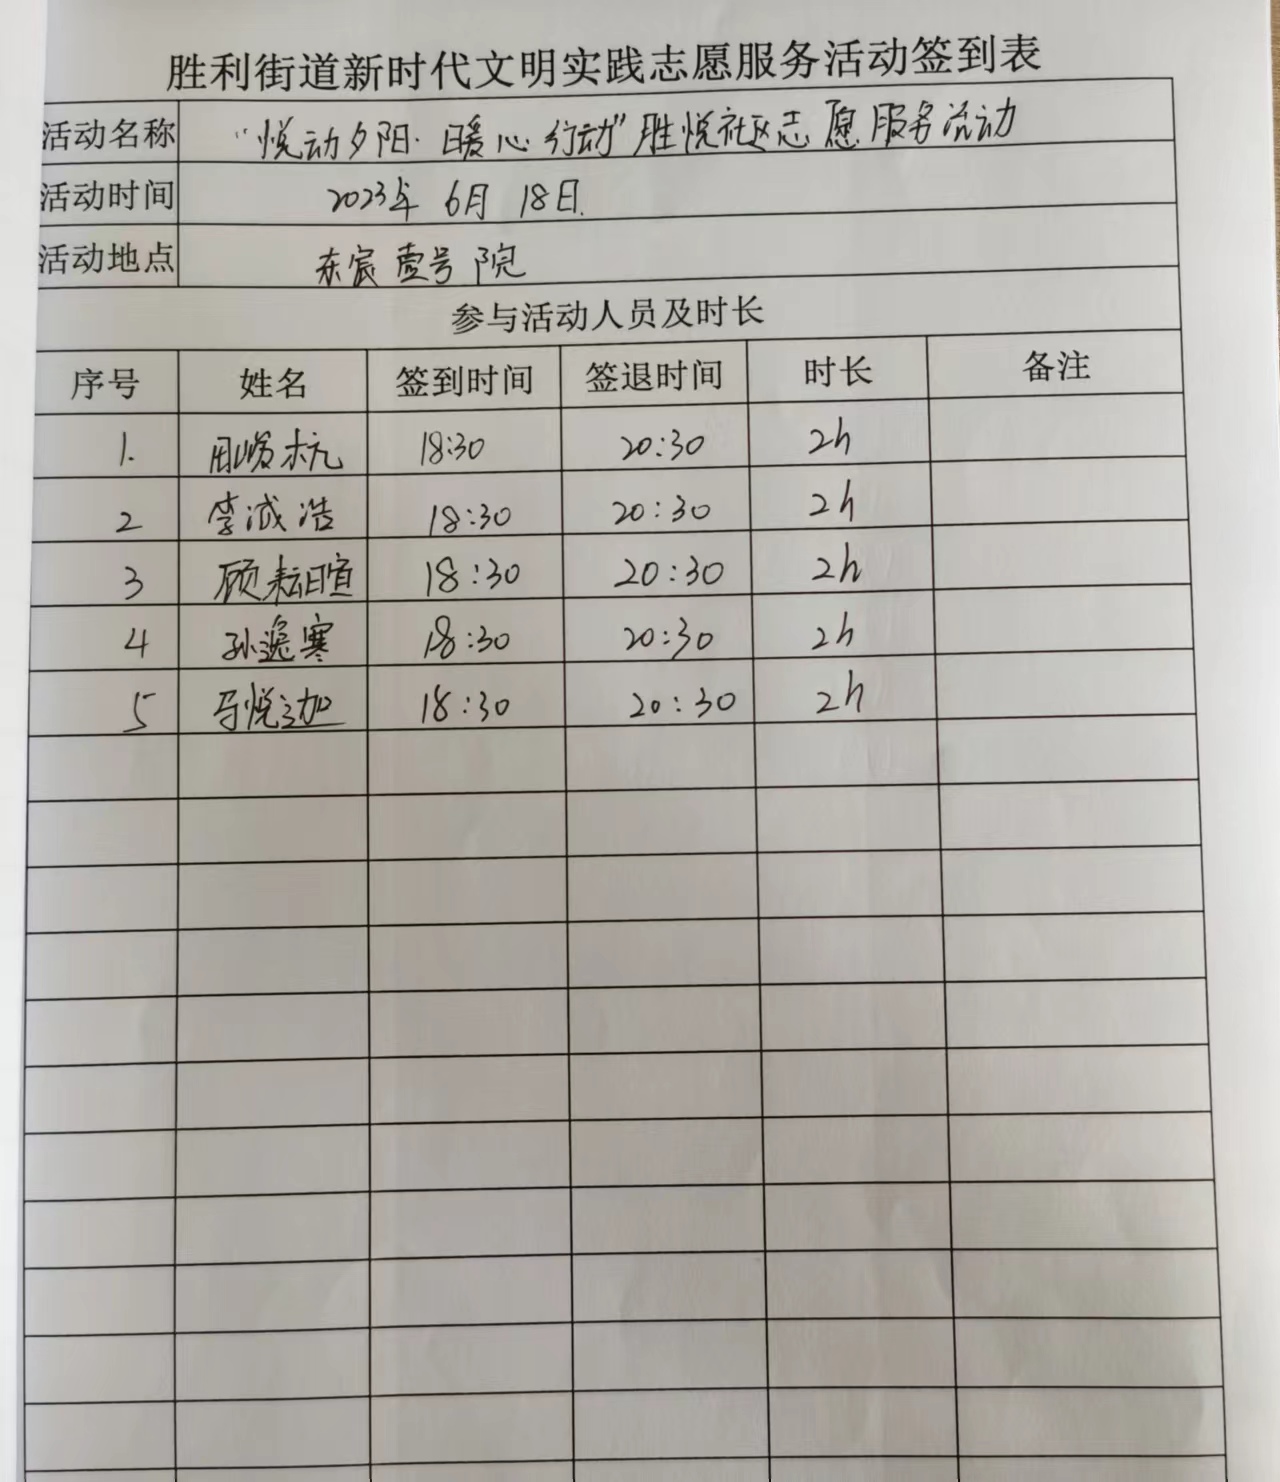 胜利街道新时代文明实践志愿服务活动签到表
活动名称 "悦动夕阳·暖心行动"胜悦社区志愿服务活动
活动时间 2023年 6月 18日.
活动地点 东宸壹号院
参与活动人员及时长
序号 姓名 签到时间 签退时间 时长 备注
1. 18:30 20:30 2h
2 李诚浩 18:30 20:30 2h
3 顾耘暄 18:30 20:30 2h
4 孙逸寒 18:30 20:30 2h
5 马悦迦 18:30 20:30 2h